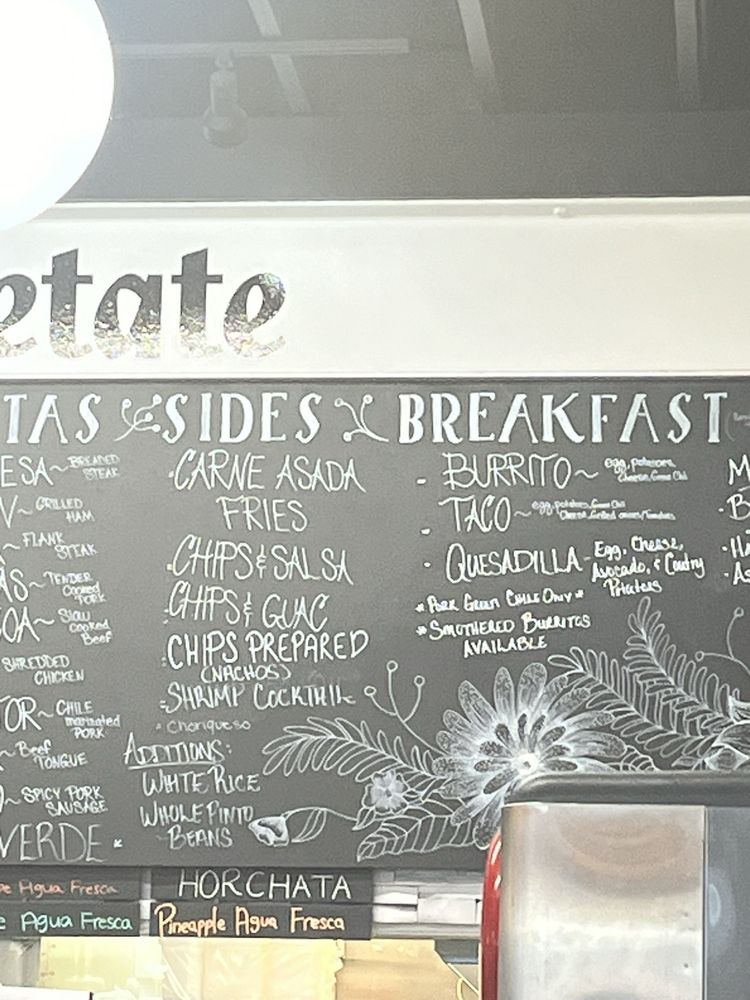 etate
TAS SIDES BREAKFAST
ESA~ BREADED
STEAK
V~ GRILLED
HAM
~ FLANK
STEAK
AS~ TENDER
Cooked
PORK
OA~ Slow
cooked
Beef
SHREDDED
CHICKEN
TOR~ CHILE
marinated
PORK
~ Beef
TONGUE
~ SPICY PORK
SAUSAGE
VERDE
·CARNE ASADA
FRIES
·CHIPS & SALSA
·CHIPS & GUAC
·CHIPS PREPARED
(NACHOS)
·SHRIMP COCKTAIL
Choriqueso
ADDITIONS:
WHITE RICE
WHOLE PINTO
BEANS
- BURRITO~ egg, potatoes,
Cheese, Green Chili
- TACO~ egg, potatoes, Green Chili
Cheese, Grilled onions/Tomatoes
· QUESADILLA- Egg, Cheese,
Avocado, & Country
Potatoes
* PORK GREEN CHILE ONLY *
* SMOTHERED BURRITOS
AVAILABLE
M
·B
·HA
·AS
pe Agua Fresca
HORCHATA
e Agua Fresca
Pineapple Agua Fresca